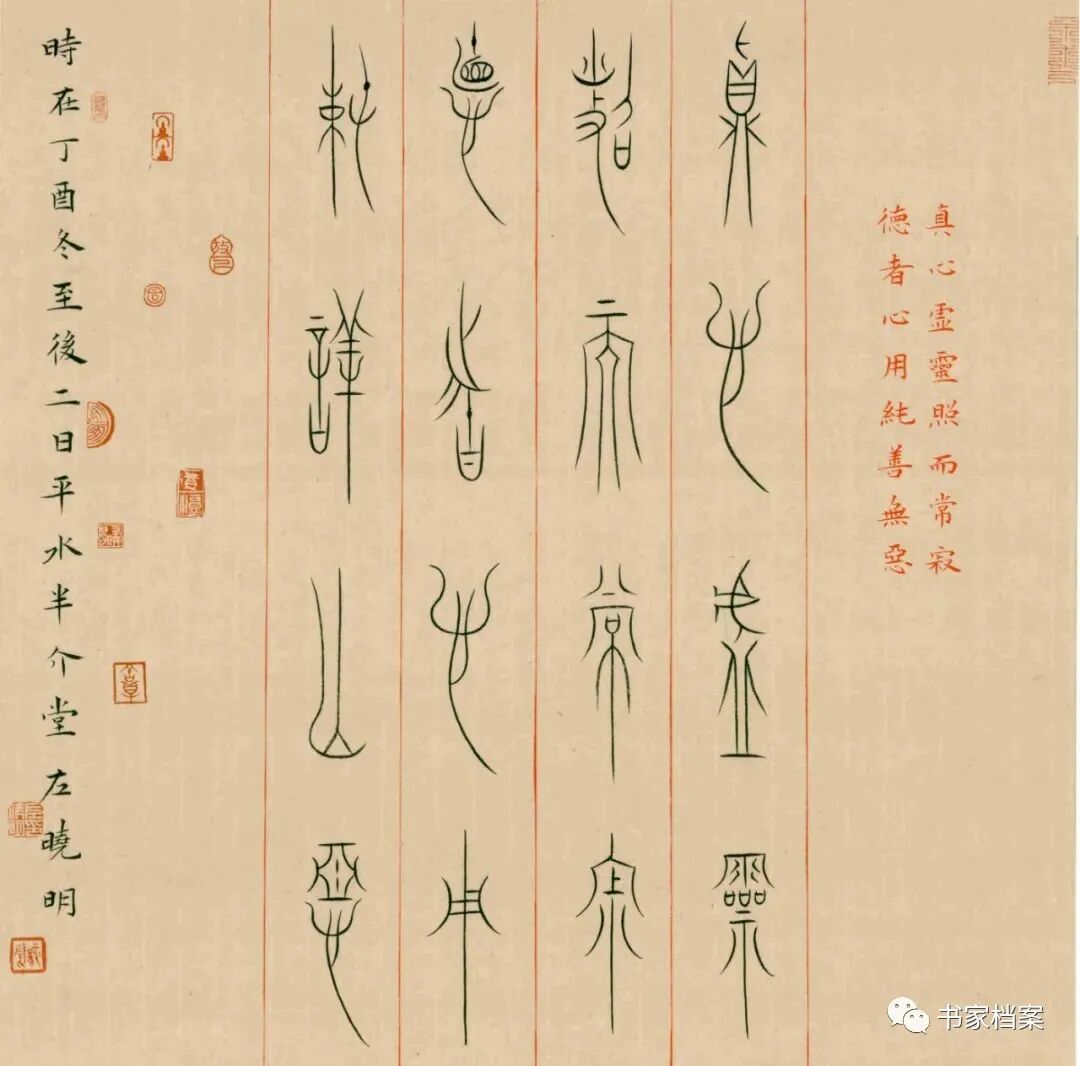 真心虛靈照而常寂
德者心用純善無惡
真心虛靈
照而常寂
德者心用
純善無惡
時在丁酉冬至後二日平水半介堂左曉明
书家档案